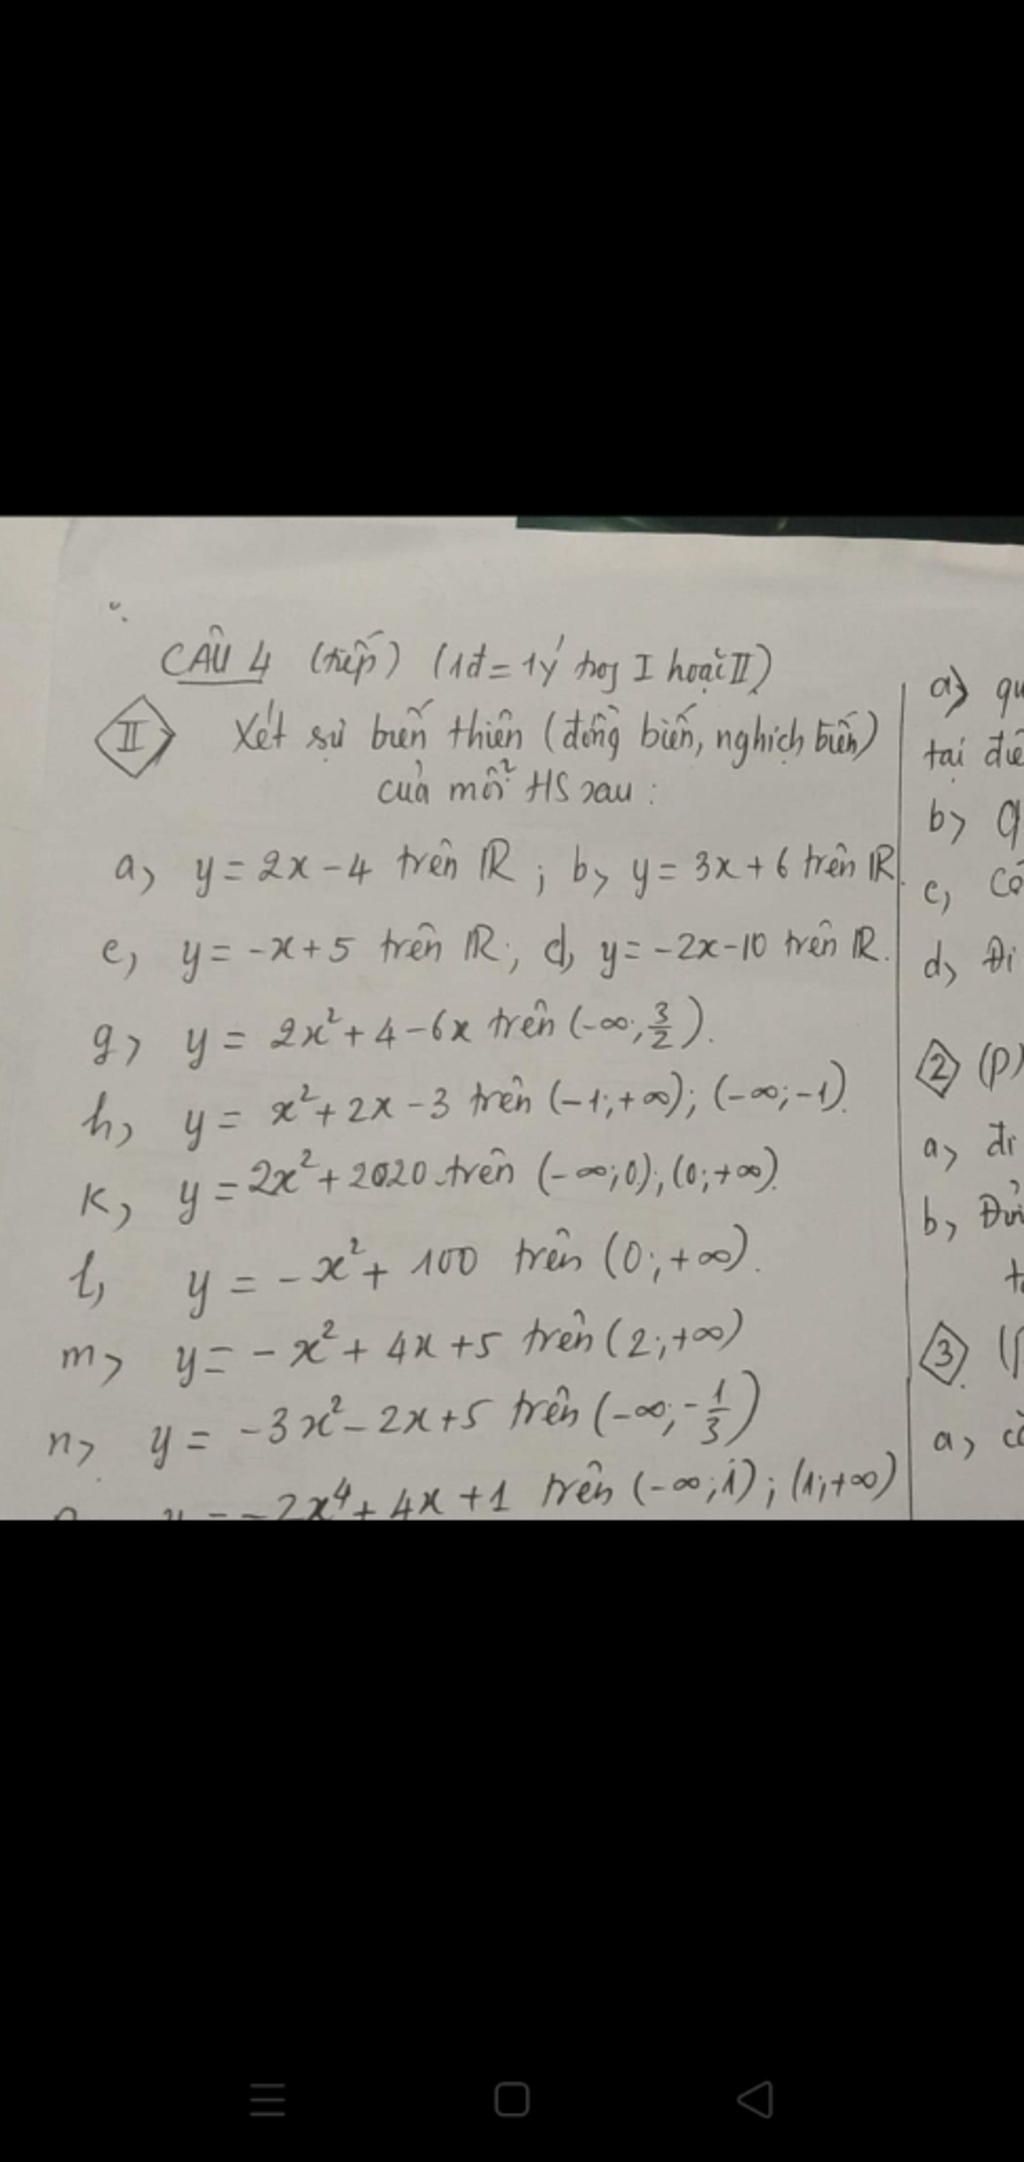 CÂU 4 (tiếp) (1đ = 1ý trog I hoặc II)
II Xét sự biến thiên (đồng biến, nghịch biến)
của mỗi HS sau:
a, y = 2x - 4 trên ℝ; b, y = 3x + 6 trên ℝ.
c, y = -x + 5 trên ℝ; d, y = -2x - 10 trên ℝ.
g, y = 2x² + 4 - 6x trên (-∞; 3/2).
h, y = x² + 2x - 3 trên (-1; +∞); (-∞; -1).
k, y = 2x² + 2020 trên (-∞; 0); (0; +∞).
l, y = -x² + 100 trên (0; +∞).
m, y = -x² + 4x + 5 trên (2; +∞)
n, y = -3x² - 2x + 5 trên (-∞; -1/3)
y = -2x⁴ + 4x + 1 trên (-∞; 1); (1; +∞)
a,
tại
b,
c,
d, Đi
2 (P)
a, đi
b,
3
a,